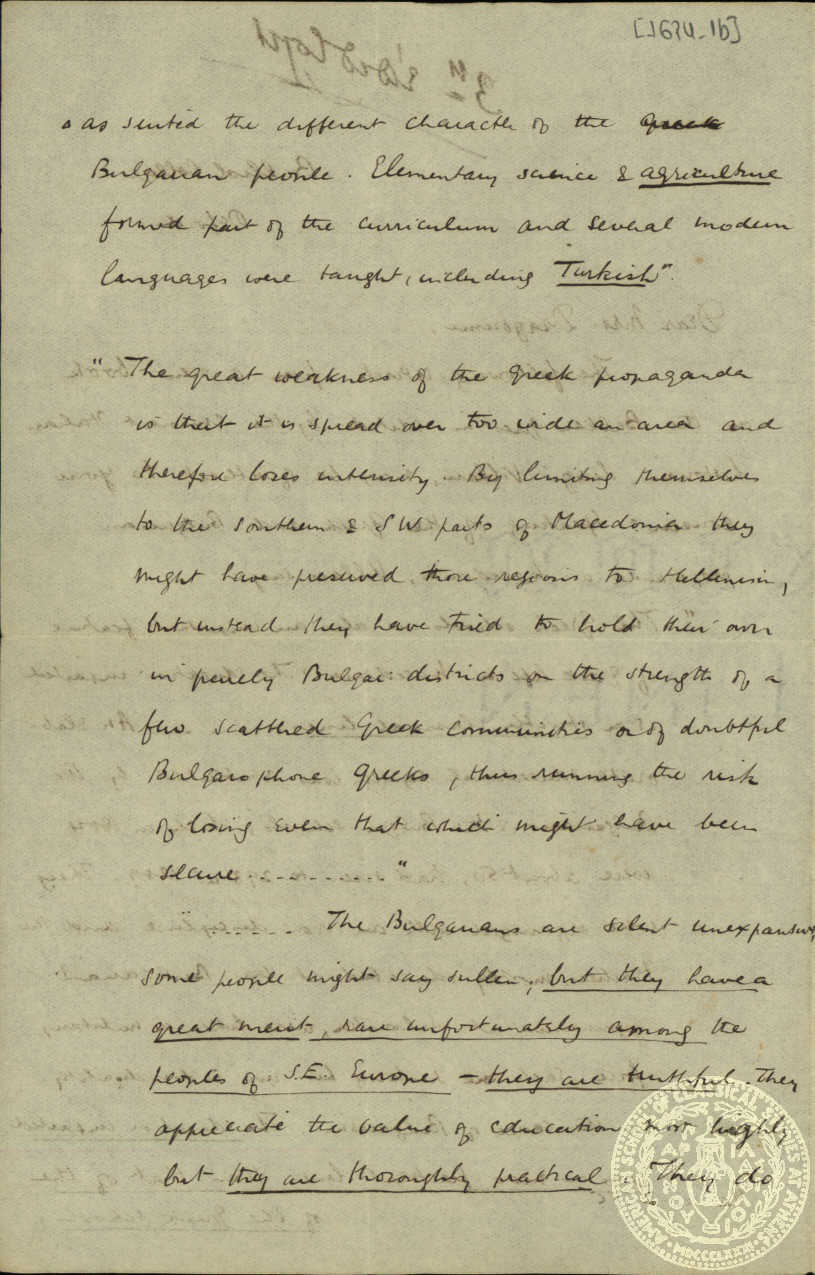 [1674-1b]
as suited the different character of the Greek
Bulgarian people. Elementary science & agriculture
formed part of the curriculum and several modern
languages were taught, including "Turkish".
"The great weakness of the Greek propaganda
is that it is spread over too wide an area and
therefore loses intensity. By limiting themselves
to the Southern & SW parts of Macedonia they
might have preserved those regions to Hellenism,
but instead they have tried to hold their own
in purely Bulgar: districts on the strength of a
few scattered Greek communities or of doubtful
Bulgarophone Greeks, thus running the risk
of losing even that which might have been
secure ............"
"...... The Bulgarians are silent unexpansive,
some people might say sullen; but they have a
great merit, rare unfortunately among the
peoples of S.E. Europe – they are truthful. They
appreciate the value of education most highly
but they are thoroughly practical. They do
AMERICAN SCHOOL OF CLASSICAL STUDIES AT ATHENS
MDCCCLXXXI